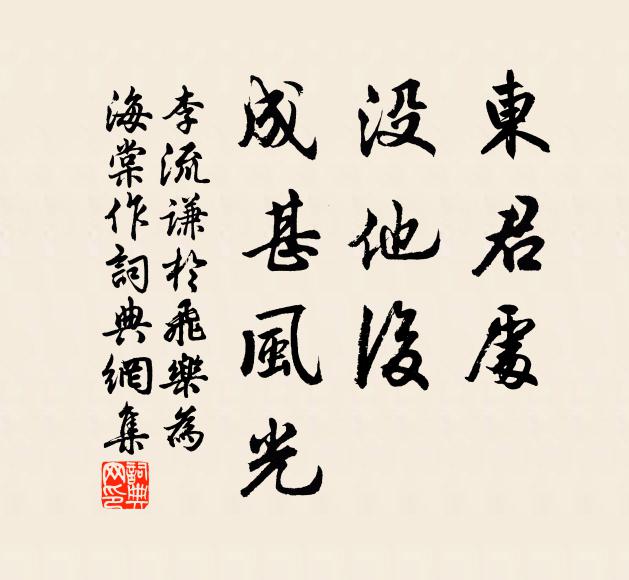 東君處
没他後
成甚風光
李流謙於飛樂為
海棠作詞典網集
詞典网印